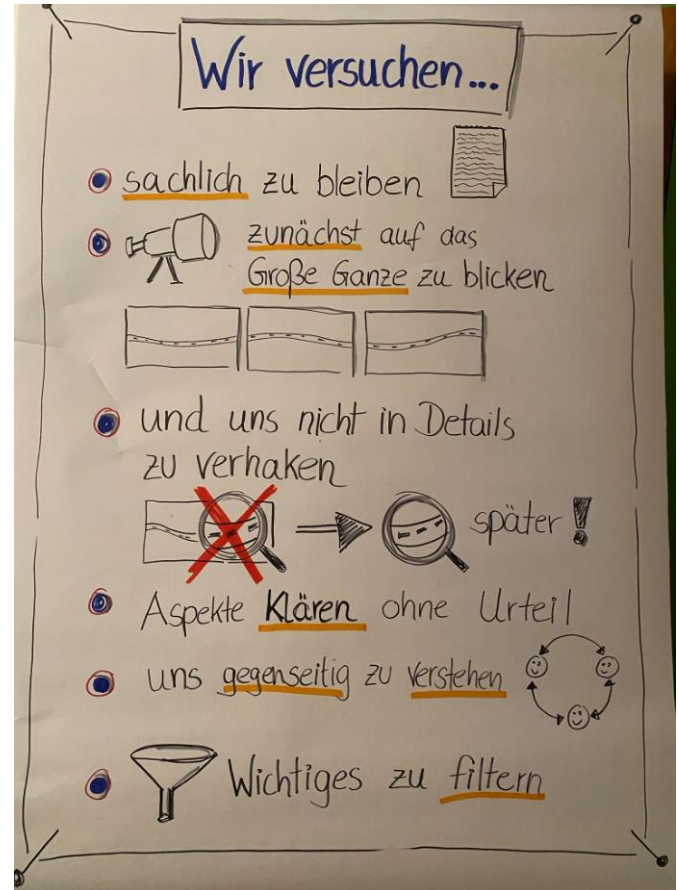 Wir versuchen...
sachlich zu bleiben
zunächst auf das
Große Ganze zu blicken
und uns nicht in Details
zu verhaken
später!
Aspekte Klären ohne Urteil
uns gegenseitig zu verstehen
Wichtiges zu filtern